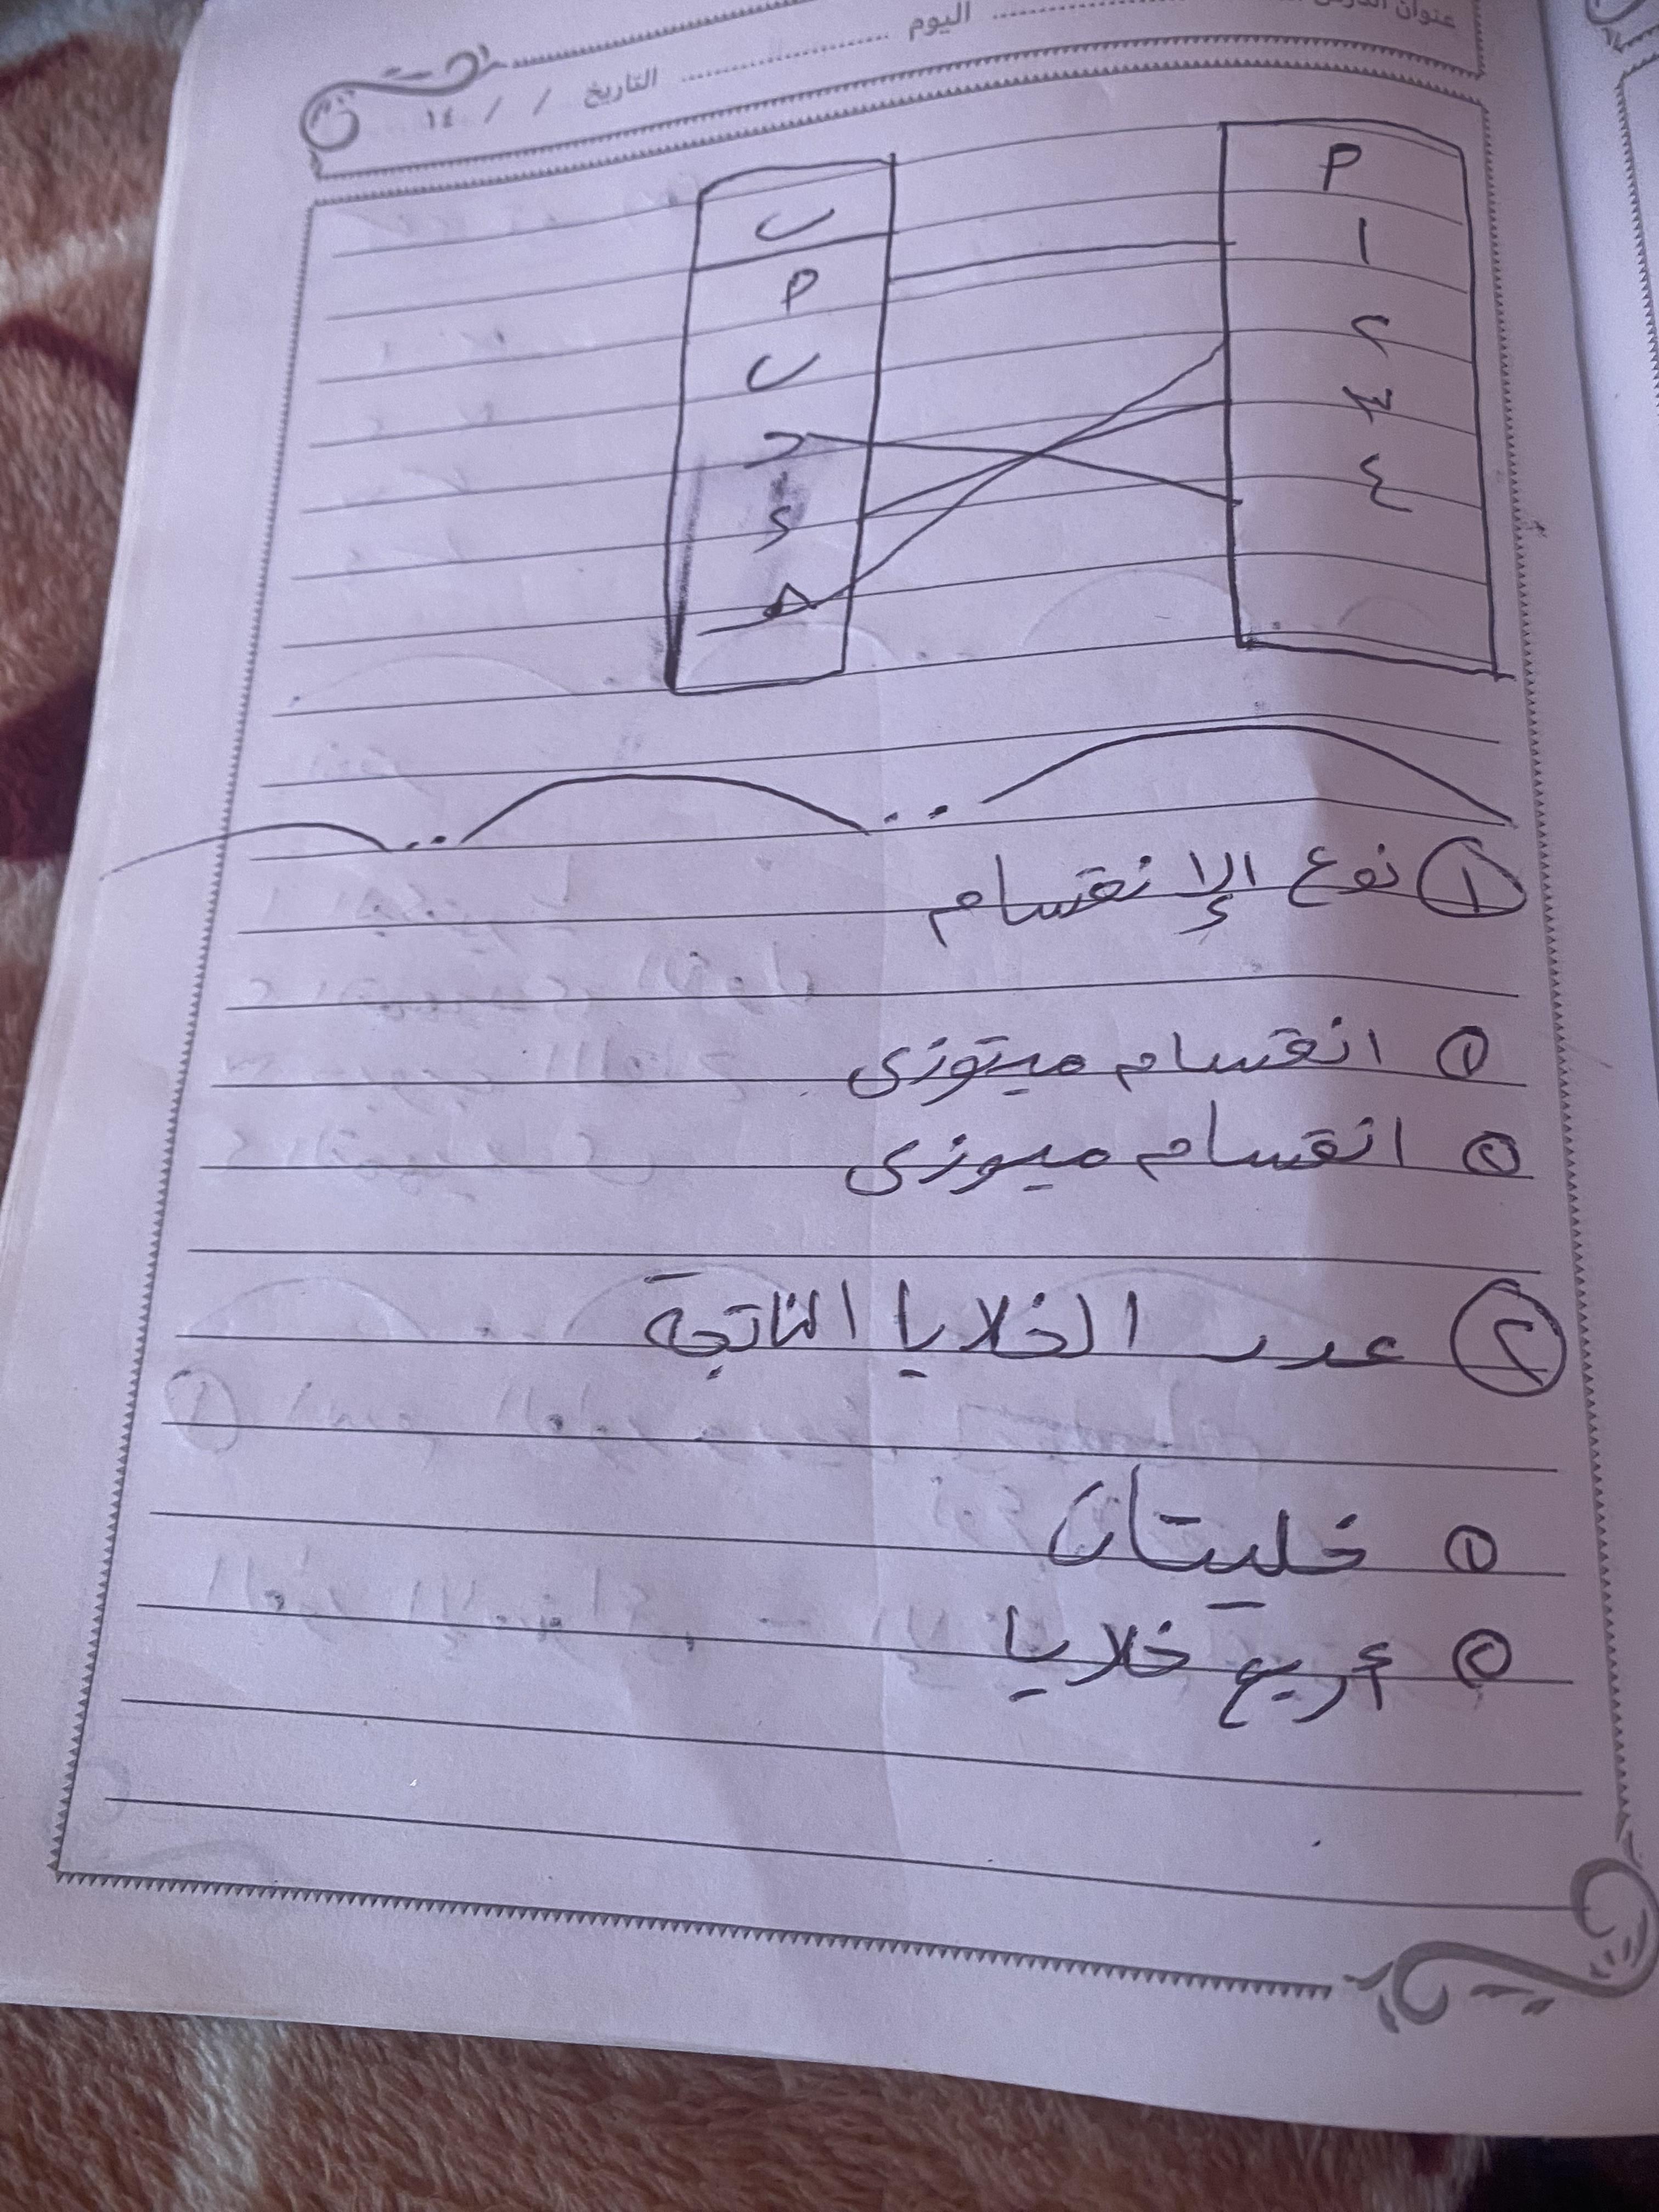 عنوان الدرس
اليوم
التاريخ / / ١٤
أ ب
١ أ
٢ ب
٣ ج
٤ د
هـ
١ نوع الإنقسام
١ انقسام ميتوزى
٢ انقسام ميوزى
٢ عدد الخلايا الناتجة
١ خليتان
٢ أربع خلايا